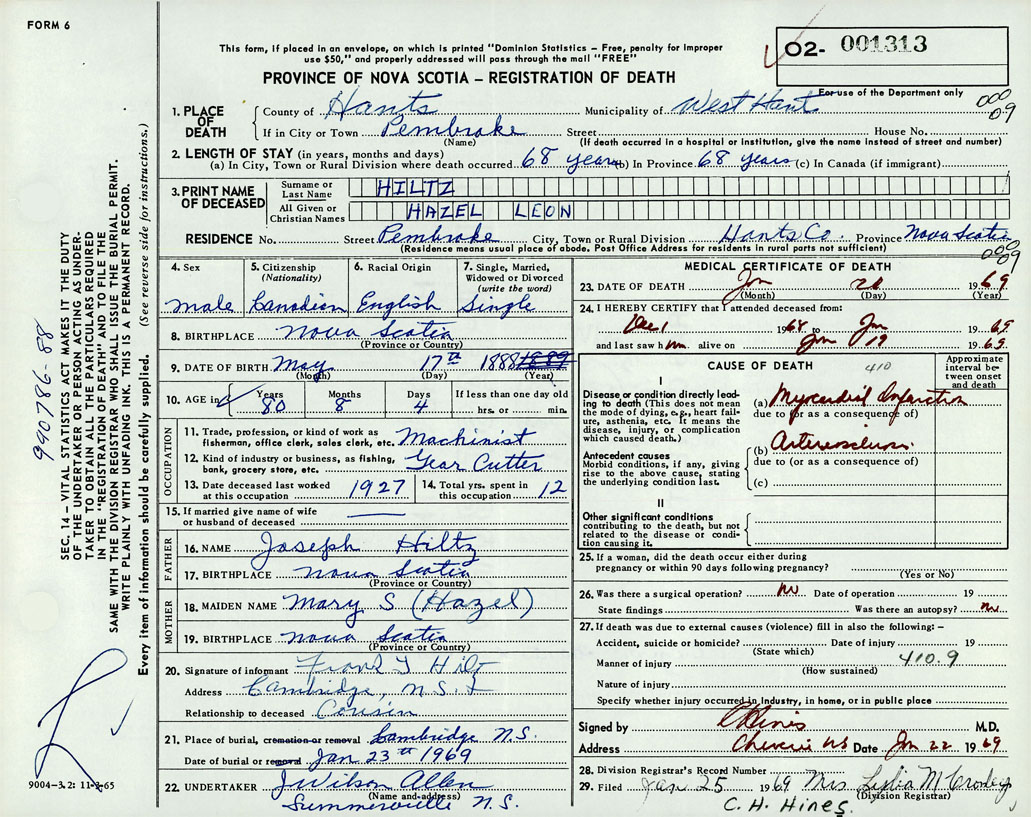 FORM 6
This form, if placed in an envelope, on which is printed "Dominion Statistics – Free, penalty for improper
use $50," and properly addressed will pass through the mail "FREE"
O2- 001313
PROVINCE OF NOVA SCOTIA – REGISTRATION OF DEATH
For use of the Department only
000
09
1. PLACE OF DEATH
County of Hants Municipality of West Hants
If in City or Town Pembroke Street House No.
(Name) (If death occurred in a hospital or institution, give the name instead of street and number)
2. LENGTH OF STAY (in years, months and days)
(a) In City, Town or Rural Division where death occurred 68 years (b) In Province 68 years (c) In Canada (if immigrant)
3. PRINT NAME OF DECEASED
Surname or Last Name HILTZ
All Given or Christian Names HAZEL LEON
RESIDENCE No. Street Pembroke City, Town or Rural Division Hants Co. Province Nova Scotia
(Residence means usual place of abode. Post Office Address for residents in rural parts not sufficient)
000
09
4. Sex
male
5. Citizenship
(Nationality)
Canadian
6. Racial Origin
English
7. Single, Married,
Widowed or Divorced
(write the word)
Single
8. BIRTHPLACE Nova Scotia
(Province or Country)
9. DATE OF BIRTH May 17th 1888 1889
(Month) (Day) (Year)
10. AGE in Years Months Days If less than one day old
80 8 4 hrs. or min.
OCCUPATION
11. Trade, profession, or kind of work as
fisherman, office clerk, sales clerk, etc. Machinist
12. Kind of industry or business, as fishing,
bank, grocery store, etc. Gear Cutter
13. Date deceased last worked
at this occupation 1927
14. Total yrs. spent in
this occupation 12
15. If married give name of wife
or husband of deceased
FATHER
16. NAME Joseph Hiltz
17. BIRTHPLACE Nova Scotia
(Province or Country)
MOTHER
18. MAIDEN NAME Mary S (Hazel)
19. BIRTHPLACE Nova Scotia
(Province or Country)
20. Signature of informant Frank T Hiltz
Address Cambridge, N.S.
Relationship to deceased Cousin
21. Place of burial, cremation or removal Cambridge N.S.
Date of burial or removal Jan 23th 1969
22. UNDERTAKER J Wilson Allen
(Name and address)
Summerville N.S.
9004-3.2: 11-3-65
MEDICAL CERTIFICATE OF DEATH
23. DATE OF DEATH Jan 1969
(Month) (Day) (Year)
24. I HEREBY CERTIFY that I attended deceased from:
Dec 1 1968 to Jan 1969
and last saw him alive on Jan 19 1969.
CAUSE OF DEATH 410
Approximate
interval be-
tween onset
and death
I
Disease or condition directly lead-
ing to death (This does not mean
the mode of dying, e.g., heart fail-
ure, asthenia, etc. It means the
disease, injury, or complication
which caused death.)
(a) Myocardial Infarction
due to (or as a consequence of)
Antecedent causes
Morbid conditions, if any, giving
rise to the above cause, stating
the underlying condition last.
(b) Arteriosclerosis
due to (or as a consequence of)
(c)
II
Other significant conditions
contributing to the death, but not
related to the disease or condi-
tion causing it.
25. If a woman, did the death occur either during
pregnancy or within 90 days following pregnancy?
(Yes or No)
26. Was there a surgical operation? No Date of operation 19
State findings Was there an autopsy? No
27. If death was due to external causes (violence) fill in also the following: –
Accident, suicide or homicide? Date of injury 19
(State which)
Manner of injury 410.9
(How sustained)
Nature of injury
Specify whether injury occurred in industry, in home, or in public place
Signed by C Hines M.D.
Address Cheverie NS Date Jan 22 1969
28. Division Registrar's Record Number
29. Filed Jan 25 1969 Mrs Lydia M
(Division Registrar)
C. H. Hines.
SEC. 14 – VITAL STATISTICS ACT MAKES IT THE DUTY
OF THE UNDERTAKER OR PERSON ACTING AS UNDER-
TAKER TO OBTAIN ALL THE PARTICULARS REQUIRED
IN THE "REGISTRATION OF DEATH" AND TO FILE THE
SAME WITH THE DIVISION REGISTRAR WHO SHALL ISSUE THE BURIAL PERMIT.
WRITE PLAINLY WITH UNFADING INK. THIS IS A PERMANENT RECORD.
Every item of information should be carefully supplied. (See reverse side for instructions.)
990786-88